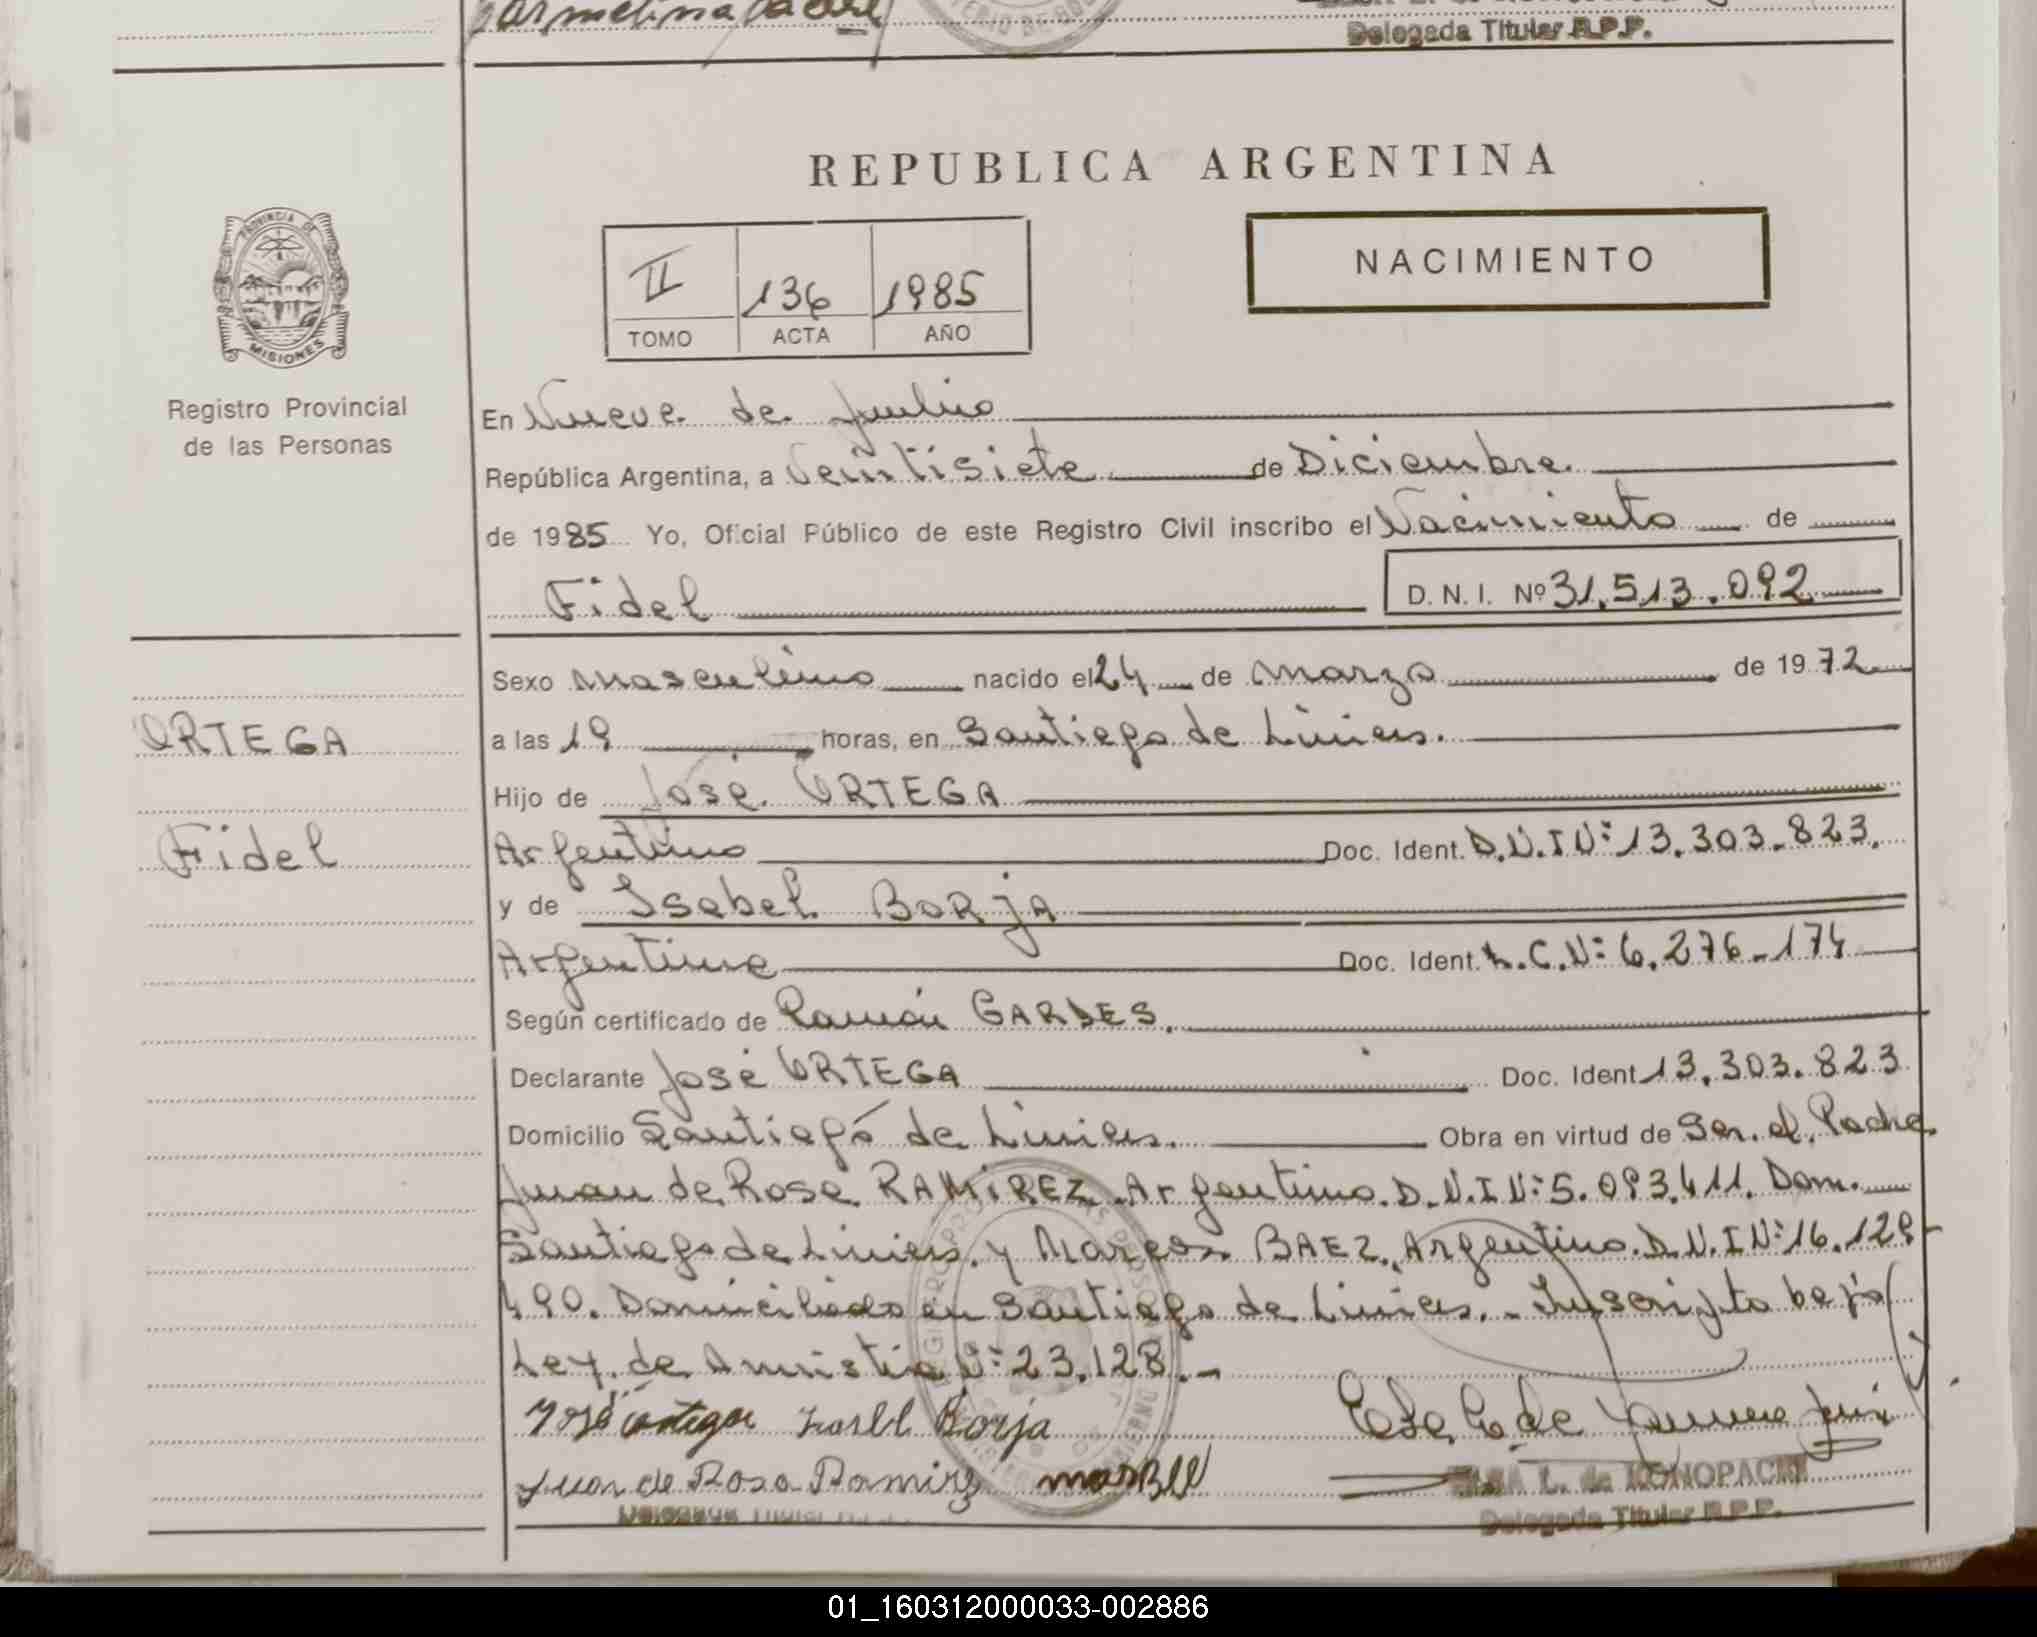 Delegada Titular R.P.P.
REPUBLICA ARGENTINA
NACIMIENTO
II 136 1985
TOMO ACTA AÑO
PROVINCIA DE
MISIONES
Registro Provincial
de las Personas
En Nueve de Julio
República Argentina, a Veintisiete de Diciembre.
de 1985 Yo, Oficial Público de este Registro Civil inscribo el Nacimiento de
Fidel
D. N. I. Nº 31.513.092
ORTEGA
Fidel
Sexo masculino nacido el 24 de marzo de 1972
a las 19 horas, en Santiago de Liniers.
Hijo de José ORTEGA
Argentino Doc. Ident. D.N.I Nº 13.303.823.
y de Isabel BORJA
Argentina Doc. Ident. L.C.Nº 6.276-174
Según certificado de Ramón GARDES.
Declarante José ORTEGA Doc. Ident 13.303.823
Domicilio Santiago de Liniers. Obra en virtud de Ser el Padre
Juan de Rosa RAMIREZ. Argentino. D.N.I Nº 5.093.411. Dom.
Santiago de Liniers. y Marcos BAEZ. Argentino. D.N.I Nº 16.129-
490. Domiciliado en Santiago de Liniers.- Inscripto bajo
Ley de Amnistia Nº 23.128.-
José ortega Isabel Borja
Juan de Rosa Ramirez
L. de KONOPACKI
Delegada Titular R.P.P.
01_160312000033-002886